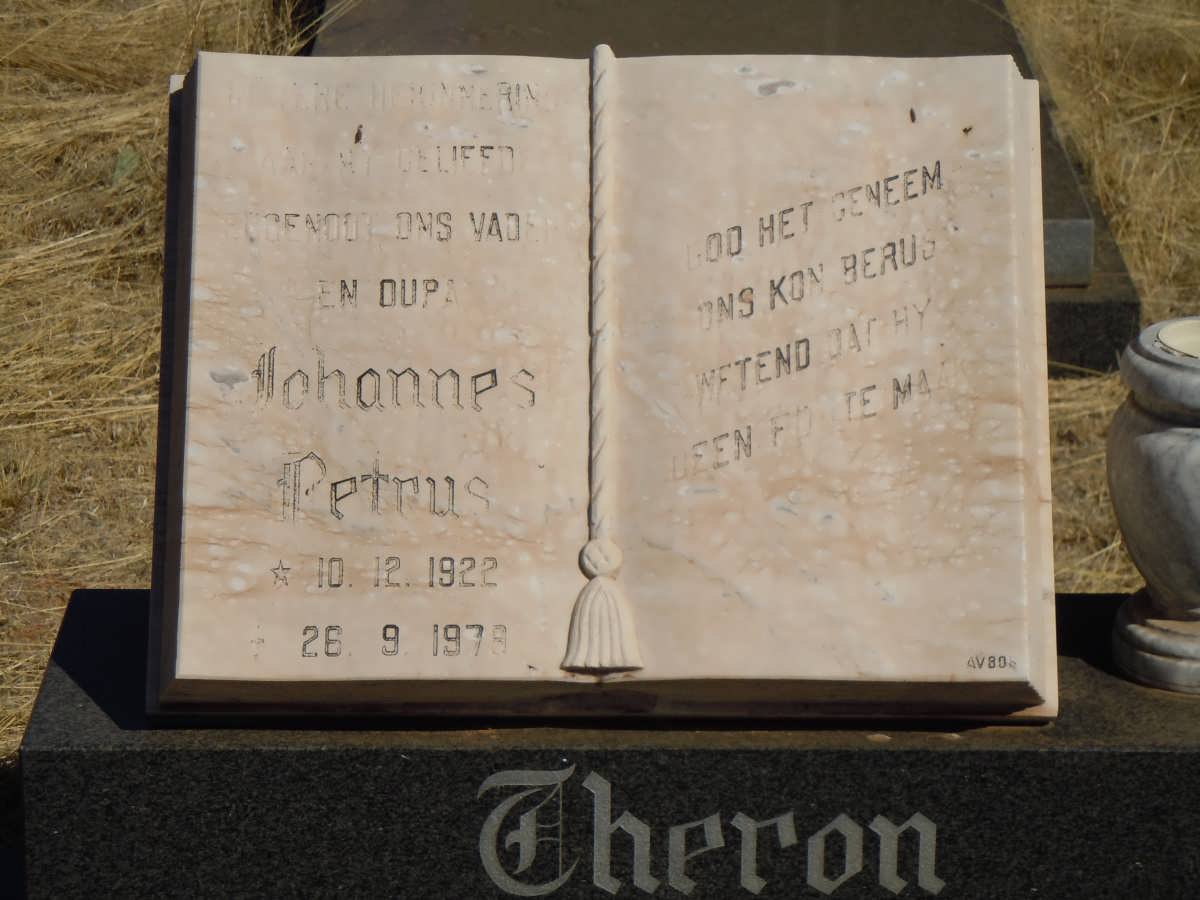 TEERE HERINNERING
AAN MY GELIEFDE
EGGENOOT, ONS VADER
EN OUPA
Johannes
Petrus
☆ 10. 12. 1922
26. 9. 1979
GOD HET GENEEM
ONS KON BERUS
WETEND DAT HY
GEEN FOUTE MAAK
AVBOB
Theron